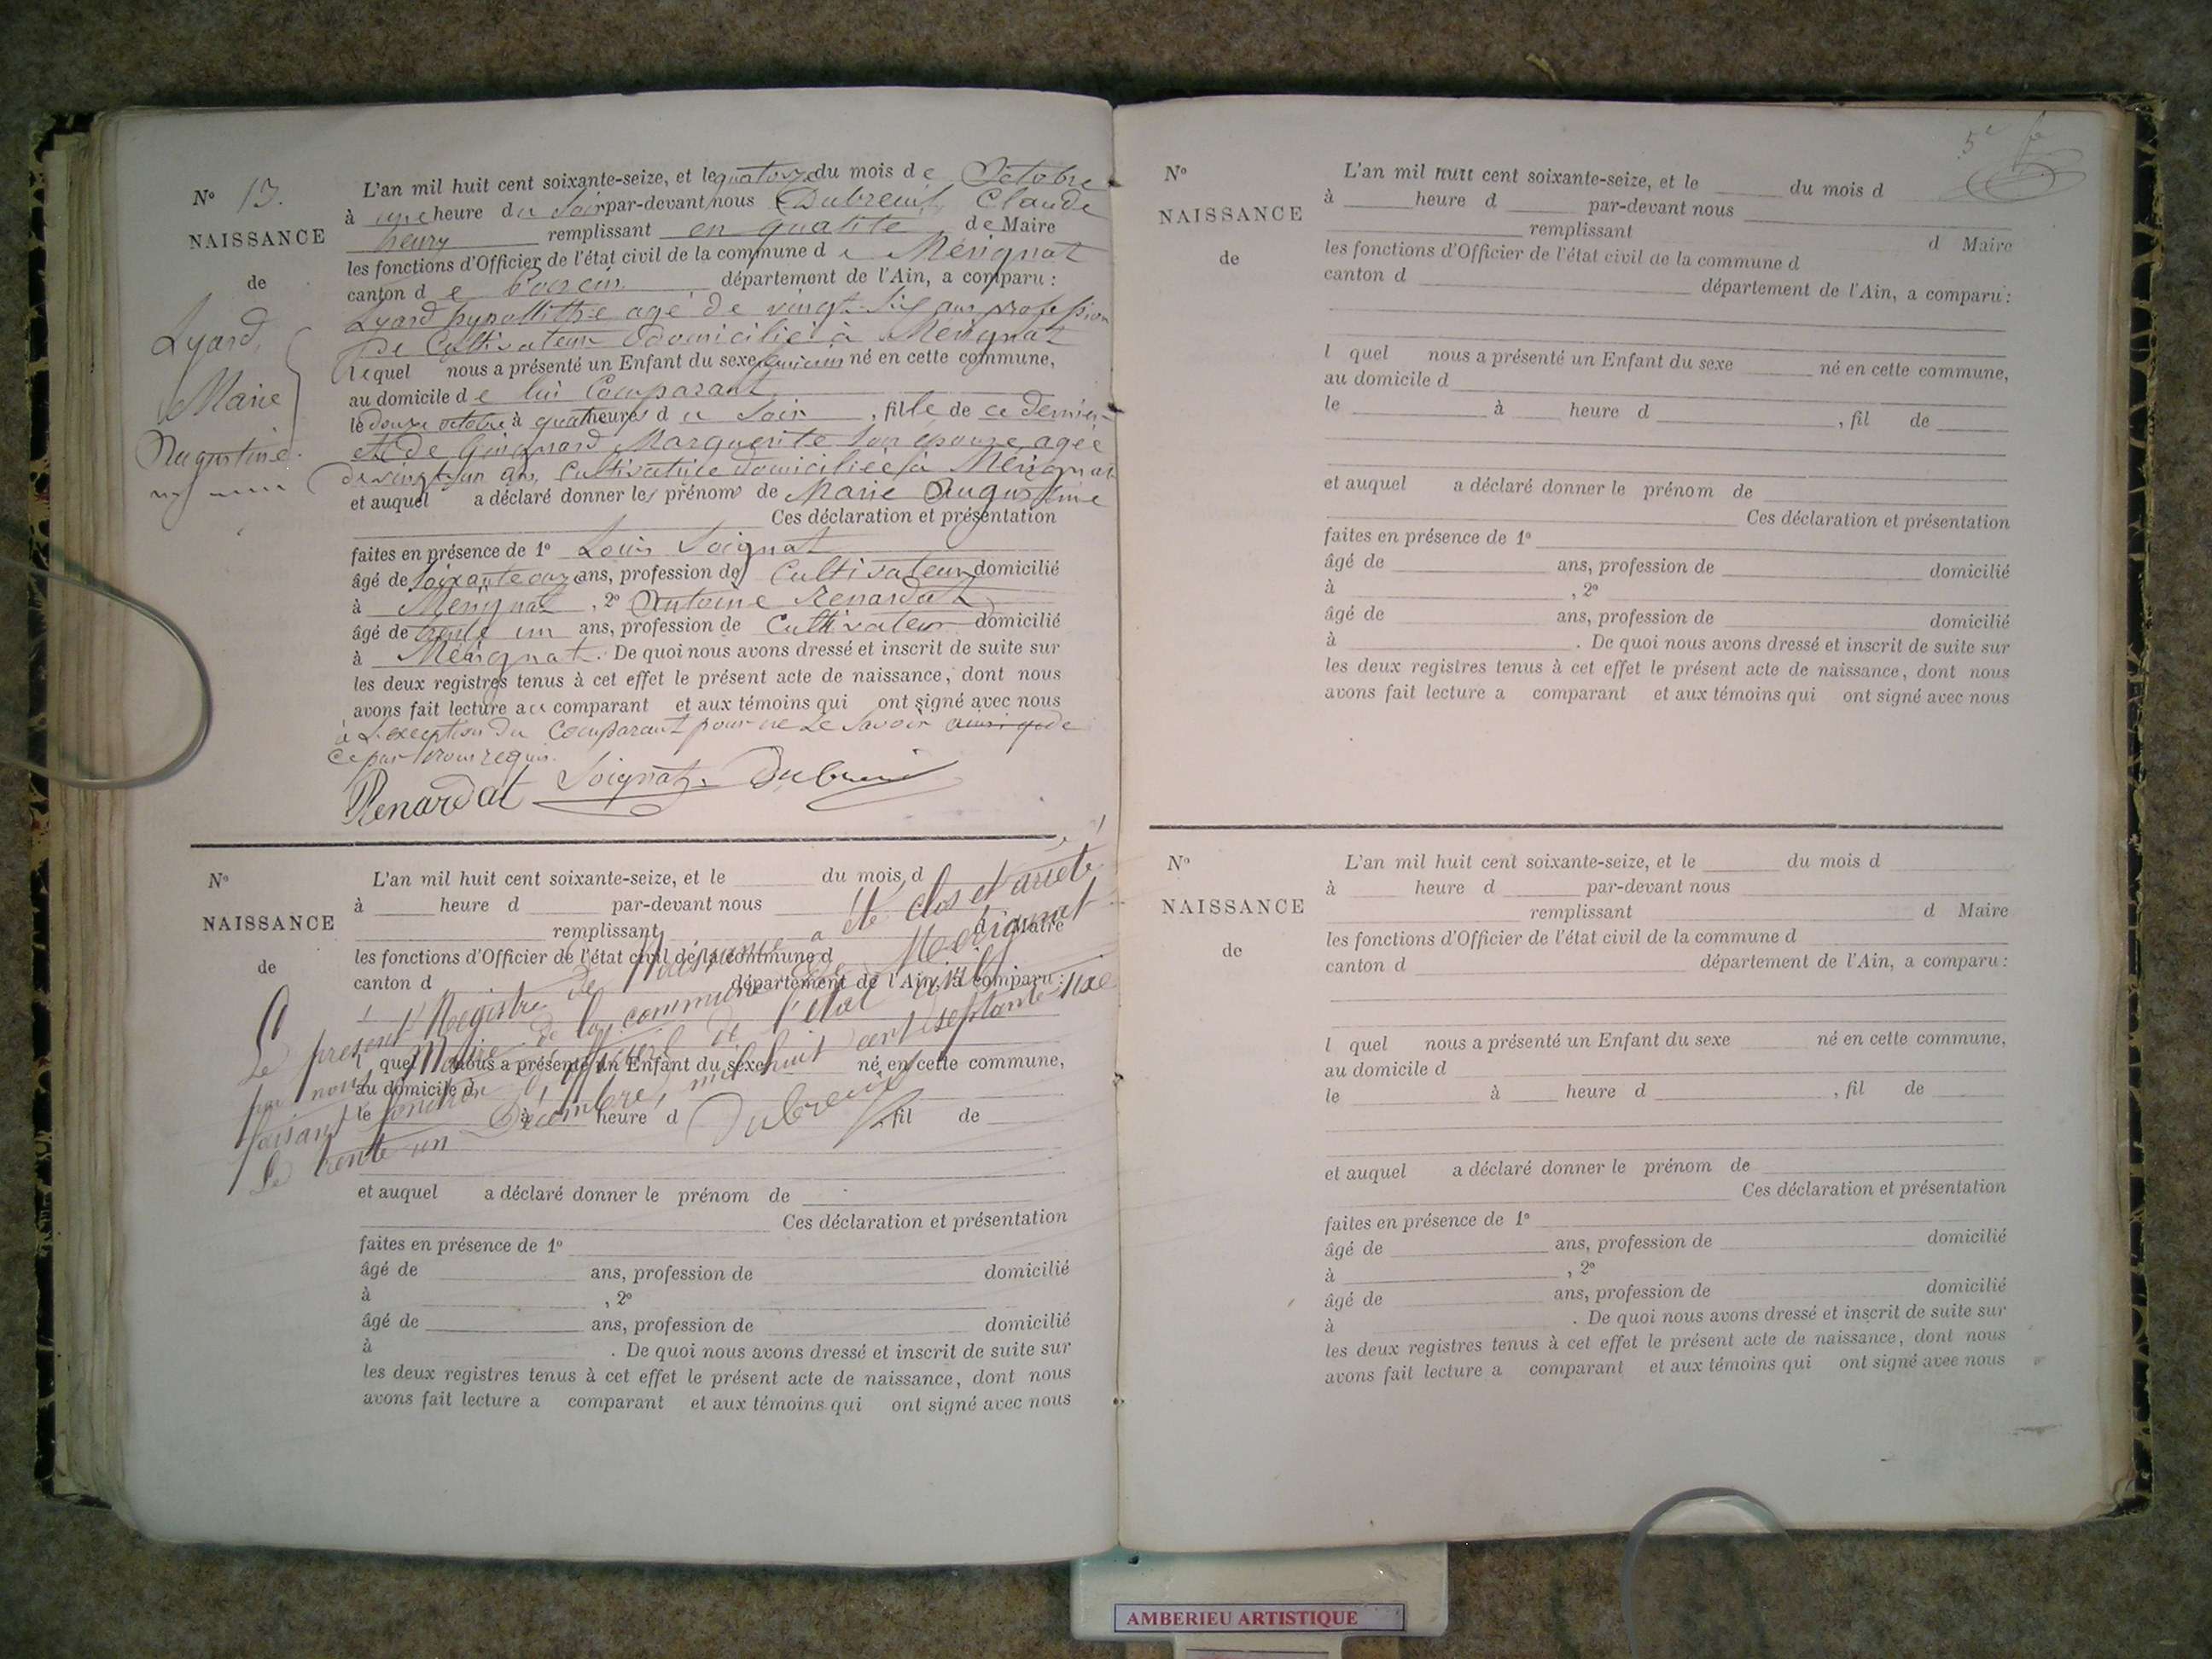 N° 13.
NAISSANCE
de
Lyard
Marie
Augustine.
L'an mil huit cent soixante-seize, et le quatorze du mois de Octobre
à une heure du soir par-devant nous Dubreuil Claude
henry remplissant en qualité de Maire
les fonctions d'Officier de l'état civil de la commune de Mérignat
canton de Poncin département de l'Ain, a comparu :
Lyard hypollithe agé de vingt-six ans profession
de Cultivateur domicilié à Mérignat
lequel nous a présenté un Enfant du sexe feminin né en cette commune,
au domicile de lui Comparant
le douze octobre à quatre heures du Soir , fille de ce dernier
et de Guignard Marguerite son épouse agée
de vingt un ans, cultivatrice domiciliée à Mérignat
et auquel a déclaré donner les prénoms de Marie Augustine
Ces déclaration et présentation
faites en présence de 1° Louis Soignat
âgé de soixante onze ans, profession de Cultivateur domicilié
à Mérignat , 2° Antoine Renardat
âgé de trente un ans, profession de Cultivateur domicilié
à Mérignat . De quoi nous avons dressé et inscrit de suite sur
les deux registres tenus à cet effet le présent acte de naissance, dont nous
avons fait lecture au comparant et aux témoins qui ont signé avec nous
à L'exception du Comparant pour ne Le Savoir ainsi que de
ce par nous requis.
Renardat Soignat Dubreuil
N°
NAISSANCE
de
L'an mil huit cent soixante-seize, et le du mois d
à heure d par-devant nous
remplissant d Maire
les fonctions d'Officier de l'état civil de la commune d
canton d département de l'Ain, a comparu :
l quel nous a présenté un Enfant du sexe né en cette commune,
au domicile d
le à heure d , fil de
et auquel a déclaré donner le prénom de
Ces déclaration et présentation
faites en présence de 1°
âgé de ans, profession de domicilié
à , 2°
âgé de ans, profession de domicilié
à . De quoi nous avons dressé et inscrit de suite sur
les deux registres tenus à cet effet le présent acte de naissance, dont nous
avons fait lecture a comparant et aux témoins qui ont signé avec nous
Le présent Registre de Naissance a été clos et arrêté
par nous Maire de la commune de Mérignat
faisant fonction d'officier de l'état civil
Le trente-un Décembre, mil huit cent septante-six
Dubreuil
5e
N°
NAISSANCE
de
L'an mil huit cent soixante-seize, et le du mois d
à heure d par-devant nous
remplissant d Maire
les fonctions d'Officier de l'état civil de la commune d
canton d département de l'Ain, a comparu :
l quel nous a présenté un Enfant du sexe né en cette commune,
au domicile d
le à heure d , fil de
et auquel a déclaré donner le prénom de
Ces déclaration et présentation
faites en présence de 1°
âgé de ans, profession de domicilié
à , 2°
âgé de ans, profession de domicilié
à . De quoi nous avons dressé et inscrit de suite sur
les deux registres tenus à cet effet le présent acte de naissance, dont nous
avons fait lecture a comparant et aux témoins qui ont signé avec nous
N°
NAISSANCE
de
L'an mil huit cent soixante-seize, et le du mois d
à heure d par-devant nous
remplissant d Maire
les fonctions d'Officier de l'état civil de la commune d
canton d département de l'Ain, a comparu :
l quel nous a présenté un Enfant du sexe né en cette commune,
au domicile d
le à heure d , fil de
et auquel a déclaré donner le prénom de
Ces déclaration et présentation
faites en présence de 1°
âgé de ans, profession de domicilié
à , 2°
âgé de ans, profession de domicilié
à . De quoi nous avons dressé et inscrit de suite sur
les deux registres tenus à cet effet le présent acte de naissance, dont nous
avons fait lecture a comparant et aux témoins qui ont signé avec nous
AMBERIEU ARTISTIQUE